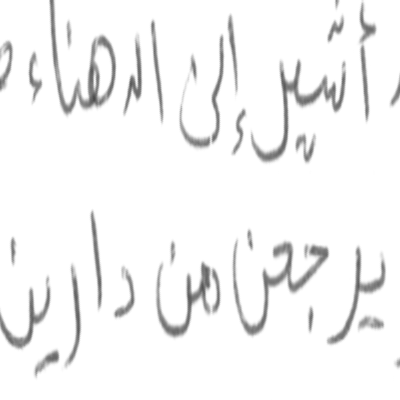 أشيل إلى الدهناء
يرجعن من دارين